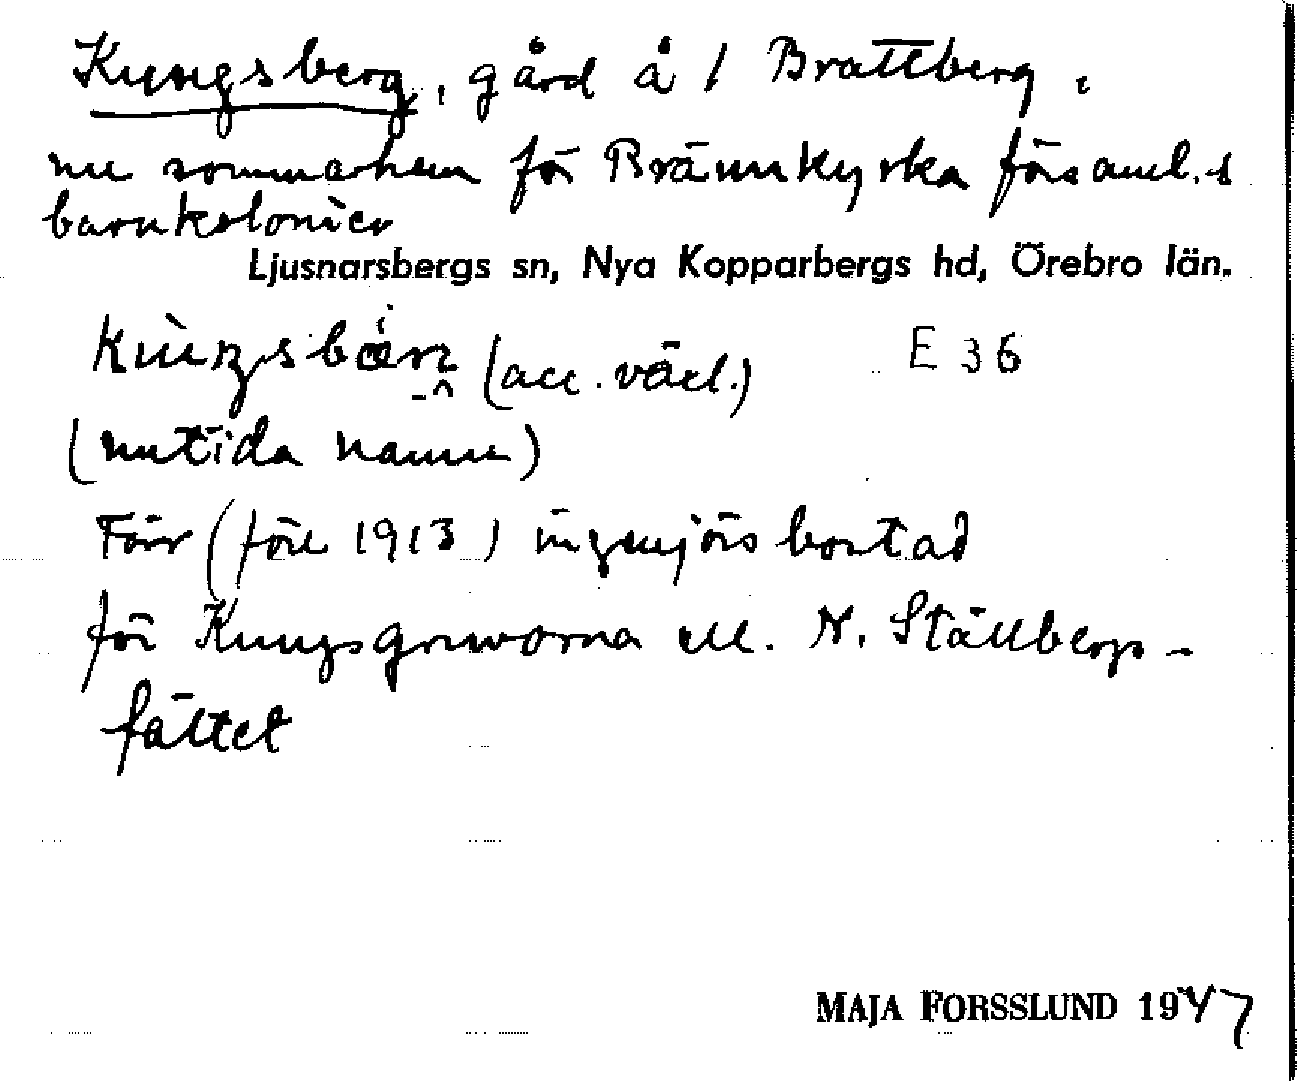 Kungsberg, gård å 1 Brattberg,
nu sommarhem för Brännkyrka församl.s
barnkolonier
Ljusnarsbergs sn, Nya Kopparbergs hd, Örebro län.
(acc. växl.) E 36
(nutida namn)
Förr (före 1913) ingenjörsbostad
för Kungsgruvorna ell. N. Ställbergs-
fältet
MAJA FORSSLUND 1947